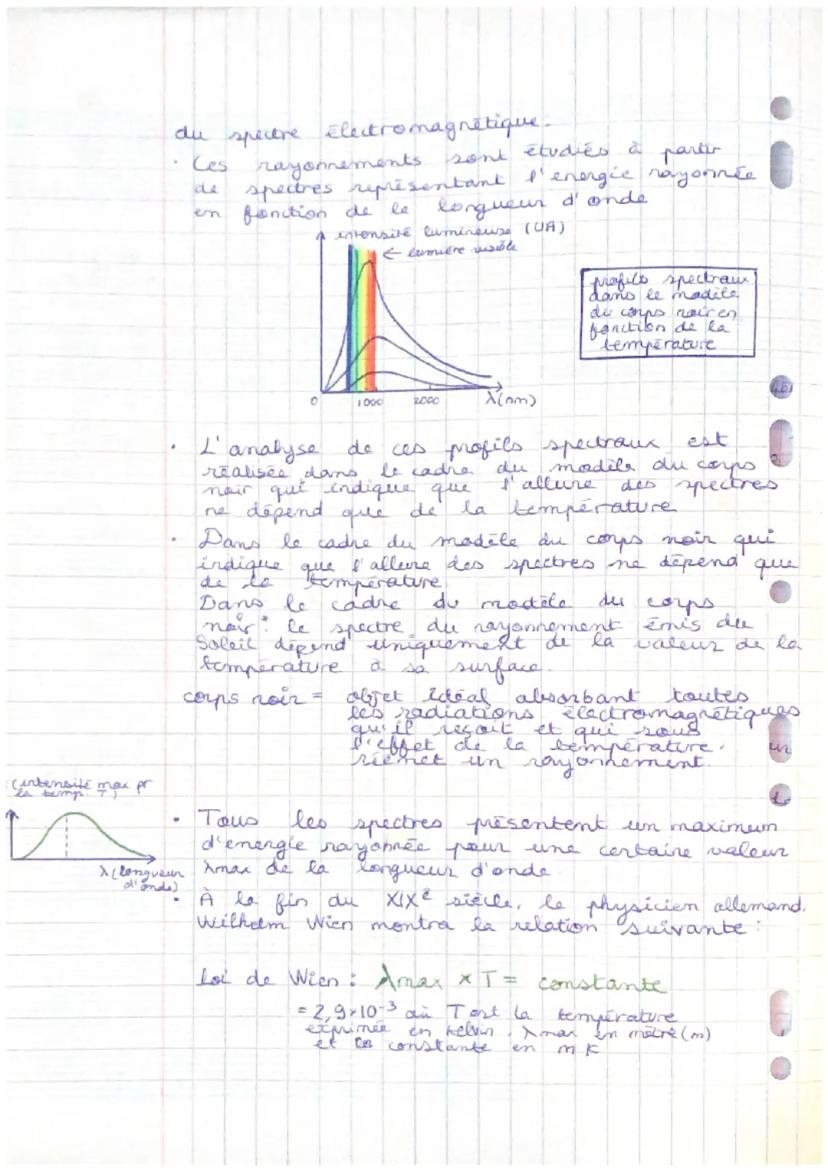 du spectre électromagnétique.
· Ces rayonnements sont étudiés à partir
de spectres représentant l'énergie rayonnée
en fonction de la longueur d'onde
intensité lumineuse (UA)
← lumière visible
profils spectraux
dans le modèle
du corps noir en
fonction de la
température
0 1000 2000 λ(nm)
· L'analyse de ces profils spectraux est
réalisée dans le cadre du modèle du corps
noir qui indique que l'allure des spectres
ne dépend que de la température
· Dans le cadre du modèle du corps noir qui
indique que l'allure des spectres ne dépend que
de la température
Dans le cadre du modèle du corps
noir* le spectre du rayonnement émis du
Soleil dépend uniquement de la valeur de la
température à sa surface.
corps noir = objet idéal absorbant toutes
les radiations électromagnétiques
qu'il reçoit et qui sous
l'effet de la température.
réémet un rayonnement.
(intensité max pr
la temp. T)
λ (longueur
d'onde)
· Tous les spectres présentent un maximum
d'énergie rayonnée pour une certaine valeur
λmax de la longueur d'onde
· À la fin du XIXe siècle, le physicien allemand,
Wilhelm Wien montra la relation suivante :
Loi de Wien : λmax × T = constante
= 2,9×10-3 où T est la température
exprimée en kelvin, λmax en mètre (m)
et constante en m K